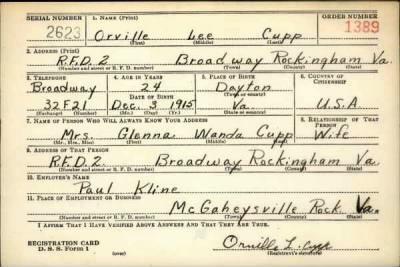 SERIAL NUMBER 1. NAME (Print) ORDER NUMBER
2623 Orville Lee Cupp 1389
(First) (Middle) (Last)
2. ADDRESS (Print)
R.F.D. 2 Broadway Rockingham Va.
(Number and street or R. F. D. number) (Town) (County) (State)
3. TELEPHONE 4. AGE IN YEARS 5. PLACE OF BIRTH 6. COUNTRY OF CITIZENSHIP
Broadway 24 Dayton
DATE OF BIRTH (Town or county)
32F21 Dec. 3 1915 Va. U.S.A.
(Exchange) (Number) (Mo.) (Day) (Yr.) (State or country)
7. NAME OF PERSON WHO WILL ALWAYS KNOW YOUR ADDRESS 8. RELATIONSHIP OF THAT PERSON
Mrs. Glenna Wanda Cupp Wife
(Mr., Mrs., Miss) (First) (Middle) (Last)
9. ADDRESS OF THAT PERSON
R.F.D. 2. Broadway Rockingham Va.
(Number and street or R. F. D. number) (Town) (County) (State)
10. EMPLOYER'S NAME
Paul Kline
11. PLACE OF EMPLOYMENT OR BUSINESS
McGaheysville Rock Va.
(Number and street or R. F. D. number) (Town) (County) (State)
I AFFIRM THAT I HAVE VERIFIED ABOVE ANSWERS AND THAT THEY ARE TRUE.
REGISTRATION CARD
D. S. S. Form 1 Orville L. Cupp
(Registrant's signature)